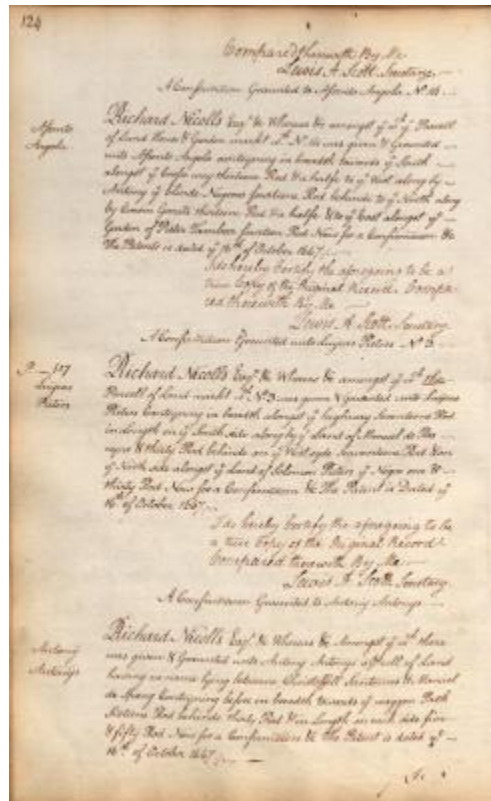 124
Compared therewith By Me
Lewis A. Scott Secretary.
A Confirmation Granted to Assento Angola No 14
Assento
Angola
Richard Nicolls Esqr. &c Whereas &c amongst ye sd ye Parcell
of Land House & Garden markt Lt. No 14 was given & Graunted
unto Assento Angola containing in breadth towards ye South
alongst ye thirteen Rod & a halfe to ye West along by
Antony ye blinde Negroes fourteen Rod behinde to ye North along
by thirteen Rod & a halfe & to ye East alongst ye
Garden of Pieter Tamboer fourteen Rod Now for a Confirmation &c
The Patent is dated ye 16th of October 1667.
I do hereby Certify the aforegoing to be a
true Copy of the Original Record. Compa-
red therewith By Me
Lewis A. Scott Secretary
A Confirmation Graunted unto Lucas Pieters No 3
P. 117
Lucas
Pieters
Richard Nicolls Esqr. &c Whereas &c amongst ye sd
Parcell of Land markt Lt. No 3 was given & graunted unto Lucas
Pieters containing in breadth alongst ye highway Seventeen Rod
in Length on ye South side along by ye Land of Manuel de
& thirty Rod behinde on ye West syde Seventeen Rod & on
ye North side alongst ye Land of Solomon Pieters ye Negro one &
thirty Rod Now for a Confirmation &c The Patent is Dated ye
16th of October 1667.
I do hereby Certify the aforegoing to be
a true Copy of the Original Record
Compared therewith By Me
Lewis A. Scott Secretary.
A Confirmation Graunted to Antony Antonys
Antony
Antonys
Richard Nicolls Esqr. &c Whereas &c Amongst ye sd there
was given & Graunted unto Antony Antonys a Parcell of Land
having no name lying between Santome & Manuel
de Containing before in breadth towards ye waggon Path
Sixteen Rod behinde thirty Rod & in Length on each side five
& fifty Rod Now for a Confirmation &c The Patent is dated ye
16th of October 1667.